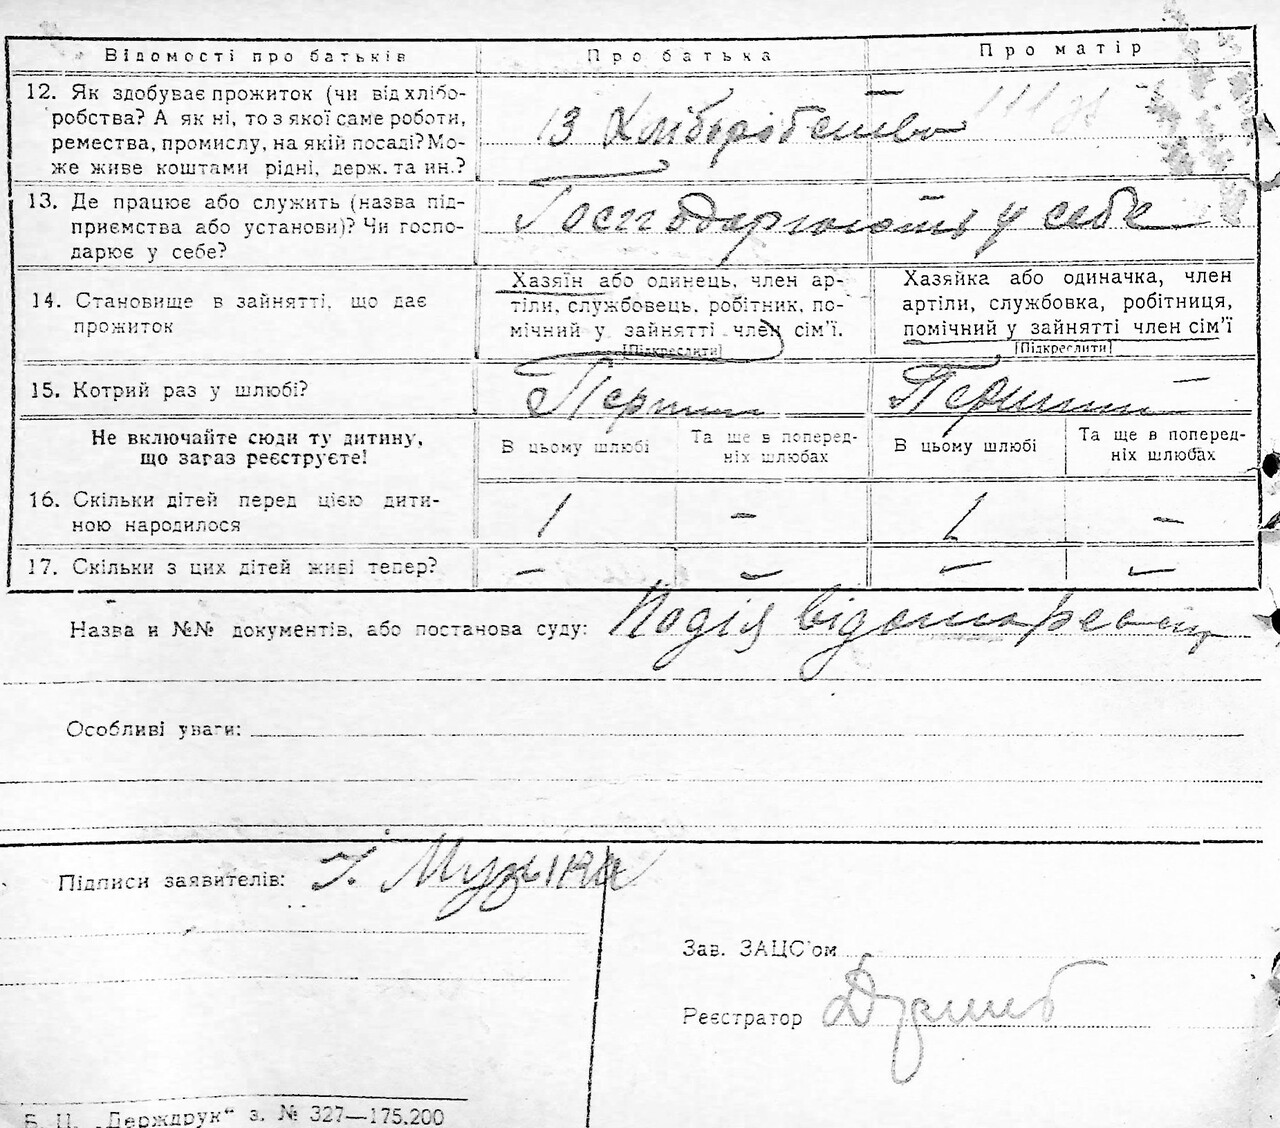 Відомості про батьків Про батька Про матір
12. Як здобуває прожиток (чи від хлібо-
робства? А як ні, то з якої саме роботи,
ремества, промислу, на якій посаді? Мо-
же живе коштами рідні, держ. та ин.?
13 Хліборобство —
13. Де працює або служить (назва під-
приємства або установи)? Чи госпо-
дарює у себе?
Господарюють у себе
14. Становище в зайнятті, що дає
прожиток
Хазяїн або одинець, член ар-
тіли, службовець, робітник, по-
мічний у зайнятті член сім'ї.
[Підкреслити]
Хазяйка або одиначка, член
артіли, службовка, робітниця,
помічний у зайнятті член сім'ї
[Підкреслити]
15. Котрий раз у шлюбі? Перший Перший —
Не включайте сюди ту дитину,
що зараз реєструєте!
В цьому шлюбі
Та ще в поперед-
ніх шлюбах
В цьому шлюбі
Та ще в поперед-
ніх шлюбах
16. Скільки дітей перед цією дити-
ною народилося
1 — 1 —
17. Скільки з цих дітей живі тепер? — — — —
Назва и №№ документів, або постанова суду: Подія
Особливі уваги:
Підписи заявителів: І. Музыка
Зав. ЗАЦС'ом
Реєстратор
Б. Ц. „Держдрук“ з. № 327—175.200